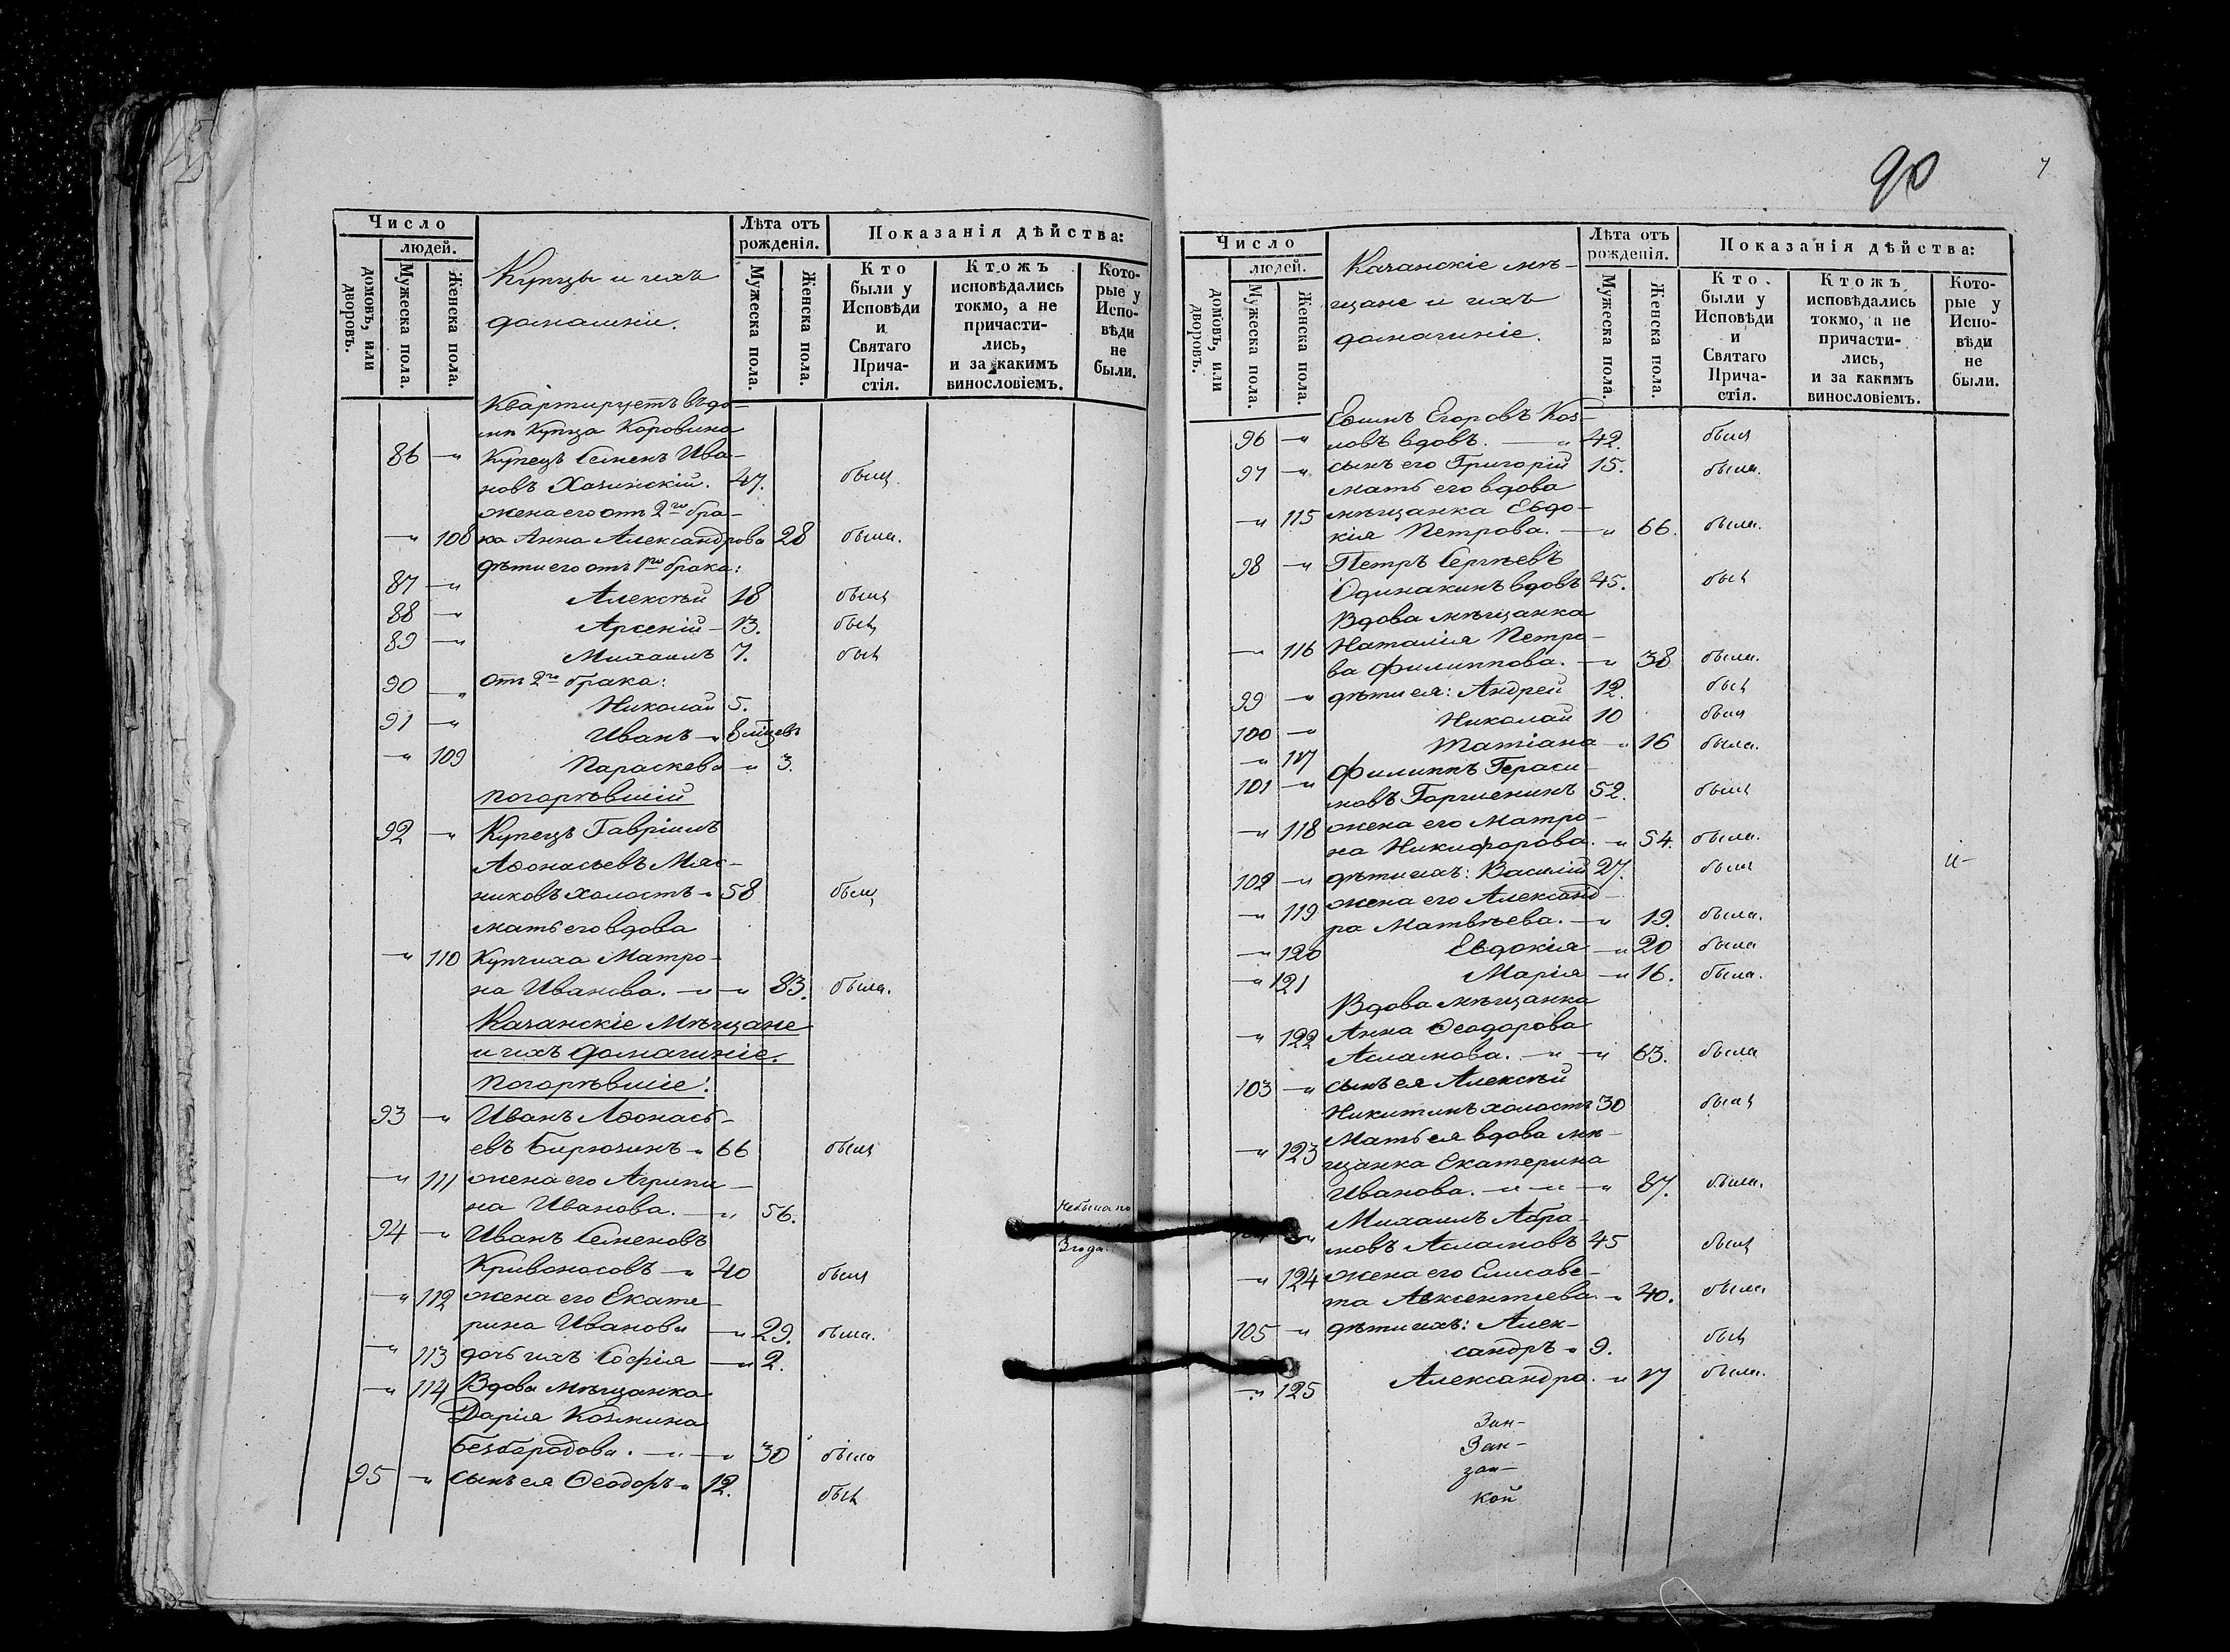 Число
людей.
домовъ, или дворовъ.
Мужеска пола.
Женска пола.
Купцы и ихъ
домашніе.
Лѣта отъ
рожденія.
Мужеска пола.
Женска пола.
Показанія дѣйства:
Кто
были у
Исповѣди
и
Святаго
Прича-
стія.
Ктожъ
исповѣдались
токмо, а не
причасти-
лись,
и за какимъ
винословіемъ.
Кото-
рые у
Испо-
вѣди
не
были.
Квартируетъ въ до-
мѣ Купца Коровина
86 —" Купецъ Семенъ Ива-
новъ Хазинскій. 47. былъ
жена его отъ 2го бра-
—" 108 ка Анна Александрова 28 была.
дѣти его отъ 1го брака:
87 —" Алексѣй 18 былъ
88 —" Арсеній — 13. былъ
89 —" Михаилъ 7. былъ
90 —" отъ 2го брака:
Николай 5.
91 —" Иванъ —" 8 мѣцевъ
—" 109 Параскева —" 3.
погорѣвшій
92 —" Купецъ Гавріилъ
Аѳонасьевъ Мяс-
никовъ холостъ —" 58 былъ
мать его вдова
—" 110 Купчиха Матро-
на Иванова. —" —" 83. была.
Казанскіе Мѣщане
и ихъ домашніе.
погорѣвшіе:
93 —" Иванъ Аѳонась-
евъ Бирючинъ —" 66 былъ
—" 111 жена его Агрипи-
на Иванова. —" 56. не была по
3 года.
94 —" Иванъ Семеновъ
Кривоносовъ —" 40 былъ
—" 112 жена его Екате-
рина Иванова —" 29. была.
—" 113 дочь ихъ Софія —" 2.
—" 114 Вдова мѣщанка
Дарія Козмина
Безбородова. —" —" 30 была
95 —" сынъ ея Ѳеодоръ —" 12. былъ
90
7
Число
людей.
домовъ, или дворовъ.
Мужеска пола.
Женска пола.
Казанскіе мѣ-
щане и ихъ
домашніе.
Лѣта отъ
рожденія.
Мужеска пола.
Женска пола.
Показанія дѣйства:
Кто
были у
Исповѣди
и
Святаго
Прича-
стія.
Ктожъ
исповѣдались
токмо, а не
причасти-
лись,
и за какимъ
винословіемъ.
Кото-
рые у
Испо-
вѣди
не
были.
Егоровъ Коз-
96 —" ловъ вдовъ. —" 42. былъ
97 —" сынъ его Григорій 15. была.
мать его вдова
—" 115 мѣщанка Евдо-
кія Петрова. —" 66. была.
98 —" Петръ Сергѣевъ
Одинакинъ вдовъ 45. былъ
Вдова мѣщанка
—" 116 Наталія Петро-
ва Филиппова. —" 38 была.
99 —" дѣти ея: Андрей 12. былъ
100 —" Николай 10 былъ
—" 117 Татіана —" 16 была.
101 —" Филиппъ Гераси-
мовъ 52. былъ
—" 118 жена его Матро-
на Никифорова. —" 54. была.
102 —" дѣти ихъ: Василій 27. былъ
—" 119 жена его Александ-
ра Матвѣева. —" 19. была.
—" 120 Евдокія —" 20 была
—" 121 Марія —" 16. была.
Вдова мѣщанка
—" 122 Анна Ѳеодорова
Асламова. —" —" 63. была
103 —" сынъ ея Алексѣй
Никитинъ холостъ 30 былъ
—" 123 Мать ея вдова мѣ-
щанка Екатерина
Иванова. —" —" —" 87. была.
Михаилъ Абра-
мовъ Асламовъ 45 былъ
—" 124 жена его Елисаве-
та Авксентіева. —" 40. была
105 —" дѣти ихъ: Алек-
сандръ —" 9. былъ
—" 125 Александра. —" 17 была.
кой